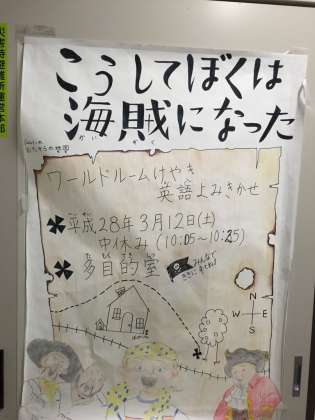 災害時避難所運営本部
こうしてぼくは
海賊になった
かいぞく
ワールドルームけやき
英語よみきかせ
平成28年3月12日(土)
中休み (10:05〜10:25)
多目的室
N
W
E
S